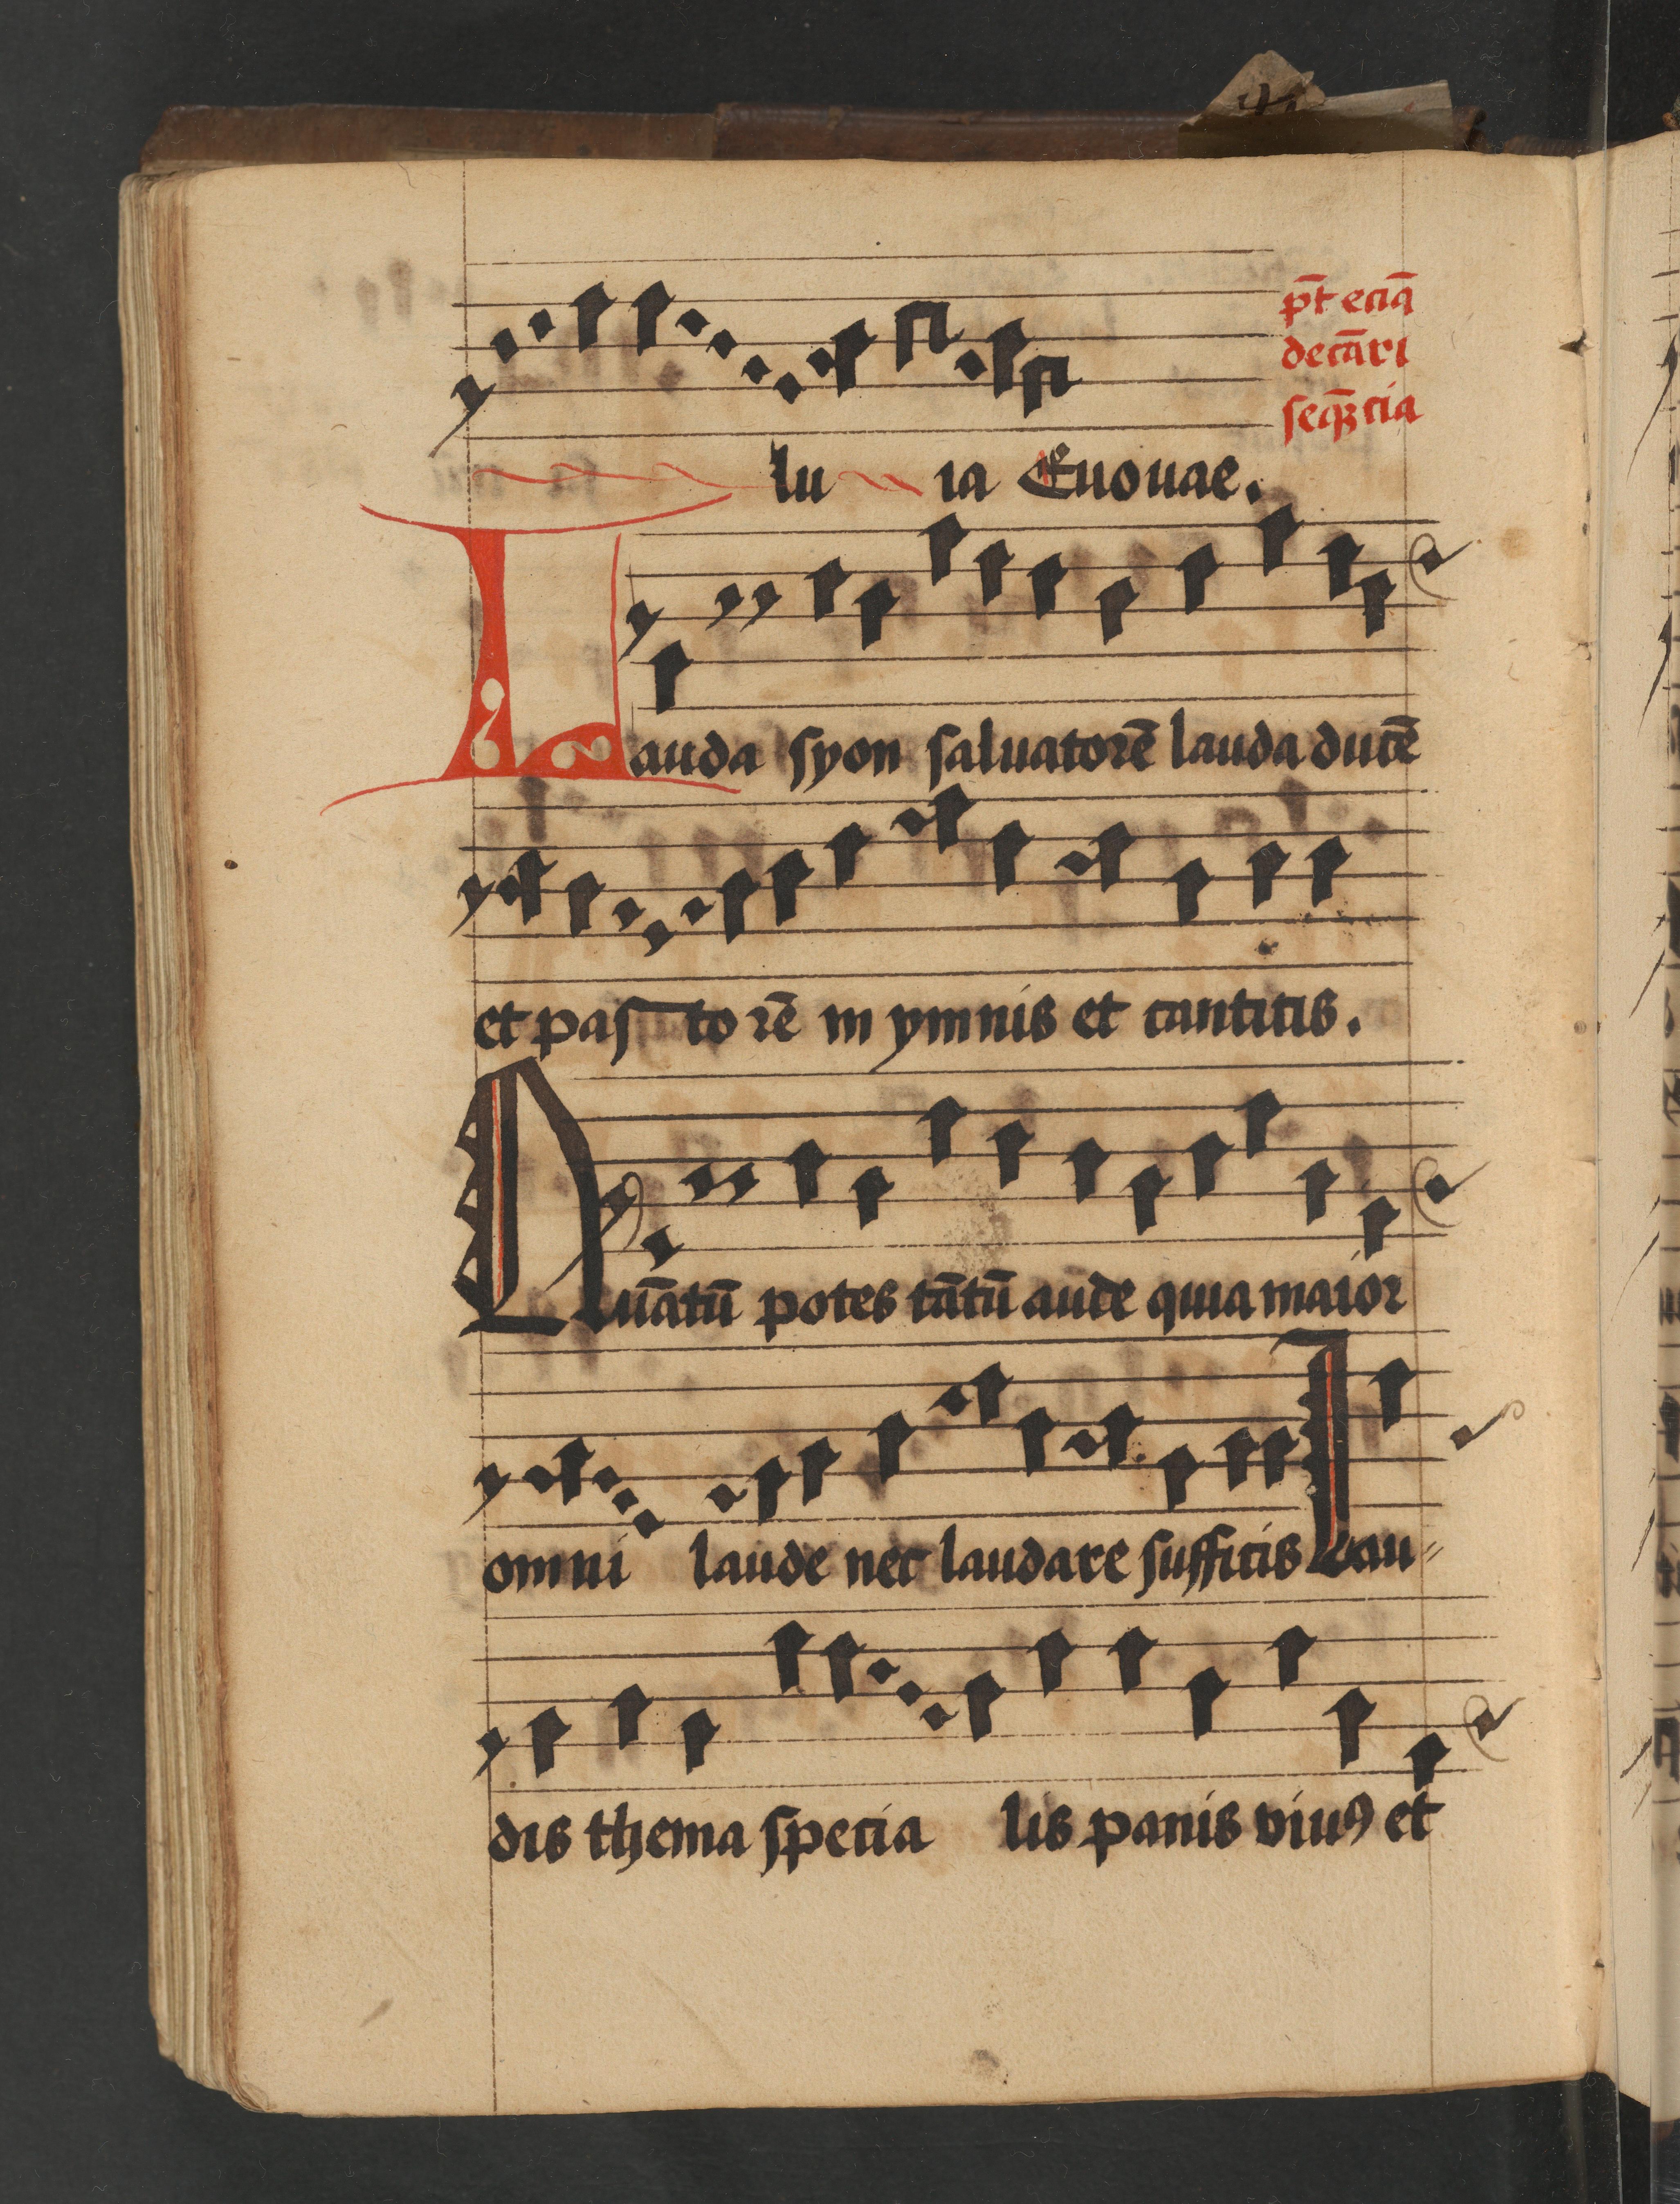 p̄t eciā
decā̄ri
seqꝫ̄cia
lu ia Euouae.
Lauda syon saluatorē lauda ducē
et pas to rē in ymnis et canticis.
Quātū potes tātū aude quia maior
omni laude nec laudare sufficis Lau⸗
dis thema specia lis panis viuꝰ et